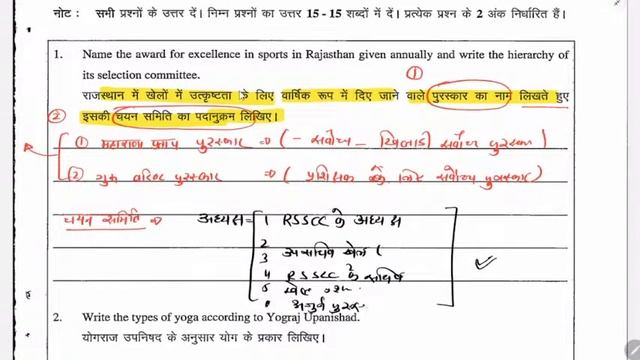 नोट : सभी प्रश्नों के उत्तर दें। निम्न प्रश्नों का उत्तर 15 - 15 शब्दों में दें। प्रत्येक प्रश्न के 2 अंक निर्धारित हैं।
1. Name the award for excellence in sports in Rajasthan given annually and write the hierarchy of
its selection committee. ①
राजस्थान में खेलों में उत्कृष्टता के लिए वार्षिक रूप में दिए जाने वाले पुरस्कार का नाम लिखते हुए
② इसकी चयन समिति का पदानुक्रम लिखिए।
① महाराणा प्रताप पुरस्कार ⇒ ( - सर्वोच्च - खिलाड़ी सर्वोच्च पुरस्कार )
② गुरु वशिष्ठ पुरस्कार ⇒ ( प्रशिक्षक के लिए सर्वोच्च पुरस्कार )
चयन समिति ⇒ अध्यक्ष = 1 RSSCC के अध्यक्ष
2
3 उपसचिव खेल (
4 RSSCC के सचिव
5 खेल
2. Write the types of yoga according to Yograj Upanishad.
योगराज उपनिषद के अनुसार योग के प्रकार लिखिए।